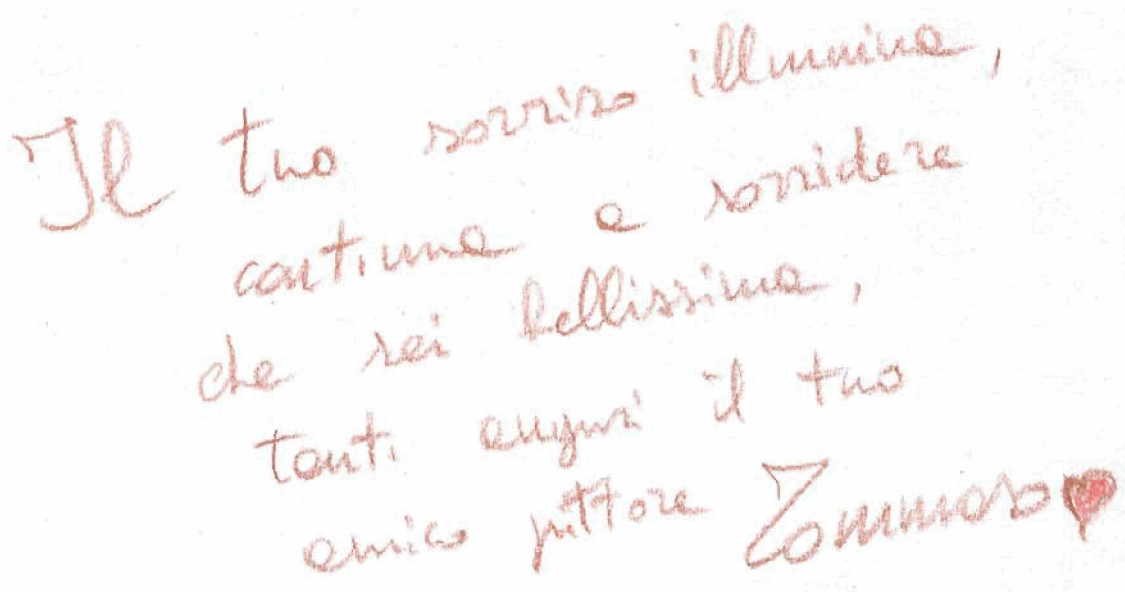 Il tuo sorriso illumina,
continua a sorridere
che sei bellissima,
tanti auguri il tuo
amico pittore Tommaso